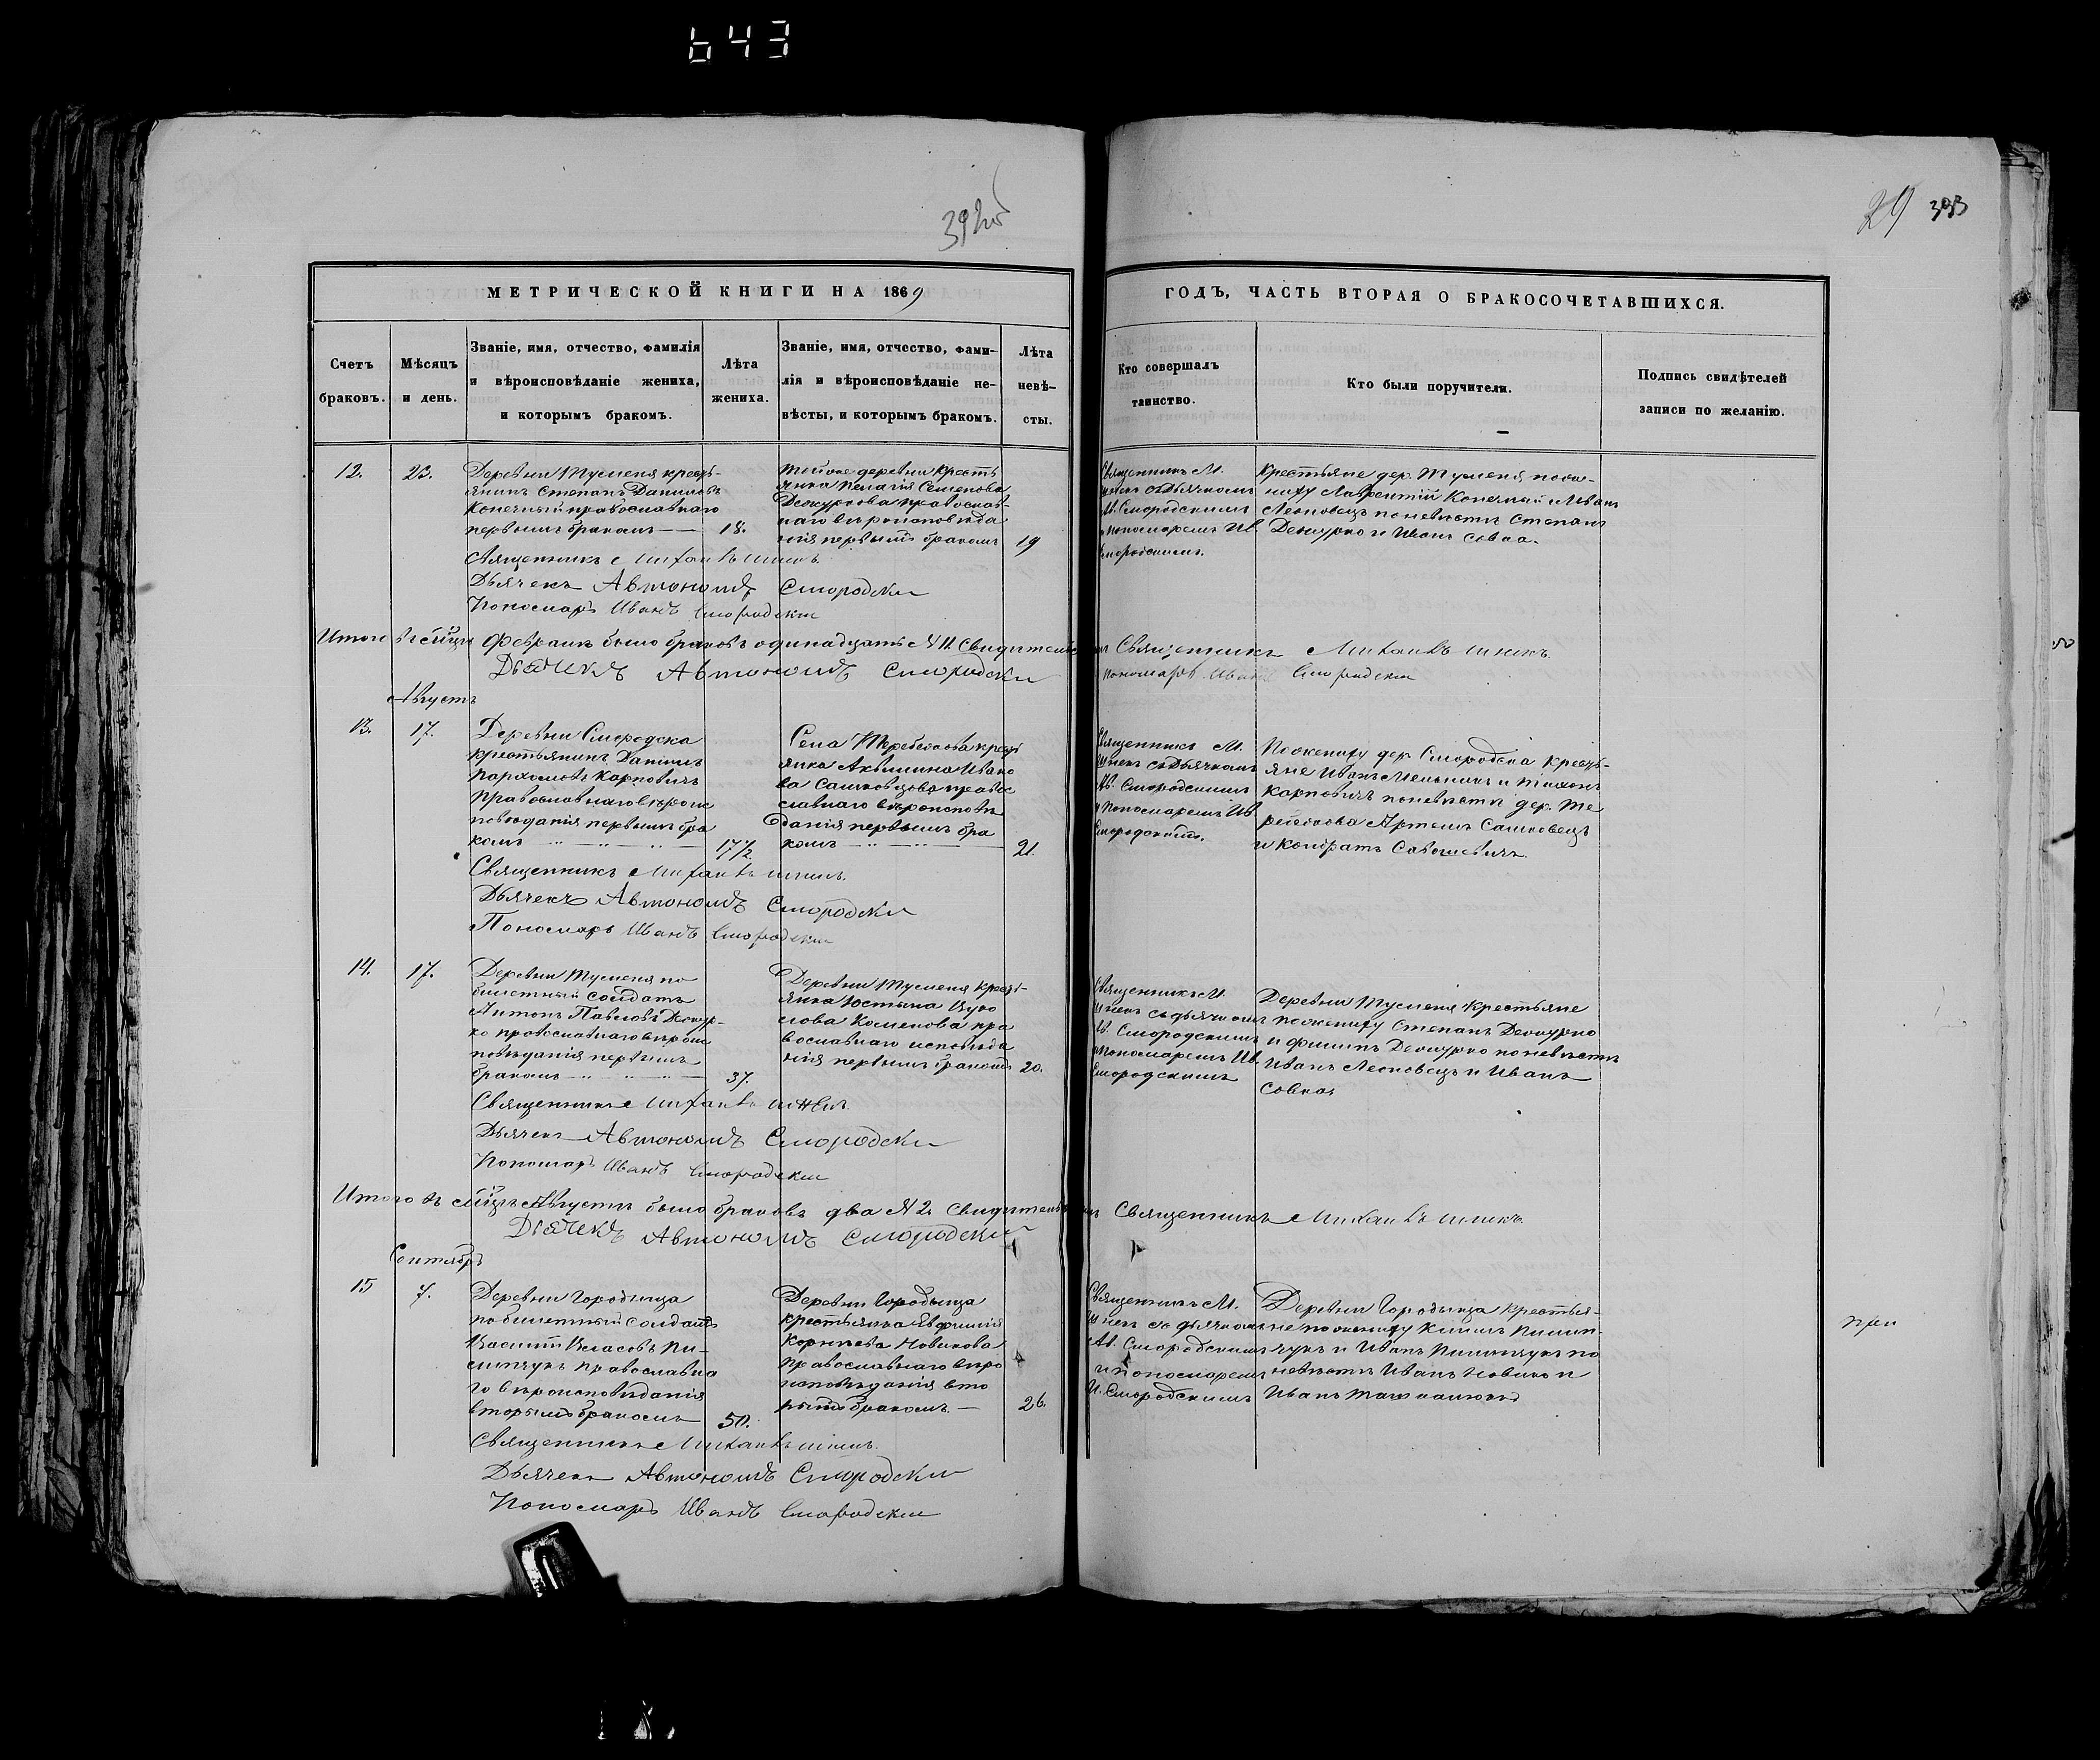 643
392об
29 393
МЕТРИЧЕСКОЙ КНИГИ НА 1869
ГОДЪ, ЧАСТЬ ВТОРАЯ О БРАКОСОЧЕТАВШИХСЯ.
Счетъ браковъ.
Мѣсяцъ и день.
Званіе, имя, отчество, фамилія
и вѣроисповѣданіе жениха,
и которымъ бракомъ.
Лѣта
жениха.
Званіе, имя, отчество, фами-
лія и вѣроисповѣданіе не-
вѣсты, и которымъ бракомъ.
Лѣта
невѣ-
сты.
Кто совершалъ
таинство.
Кто были поручители.
Подпись свидѣтелей
записи по желанію.
12.
23.
Деревни Туменя кресть-
янинъ Степанъ Даниловъ
Конечный православнаго
первымъ бракомъ
18.
тойже деревни кресть
янка Пелагія Семенова
православ-
наго вѣроисповѣда
нія первымъ бракомъ
19
Священникъ М.
съ Дьячкомъ
Ав. Смородскимъ
и Пономаремъ Ив.
Смородскимъ.
Крестьяне дер. Туменя по же-
ниху Лаврентій Конечный и Иванъ
Леоновецъ по невѣстѣ Степанъ
и Иванъ Совка.
Священникъ Михаилъ
Дьячекъ Автономъ Смородски
Пономарь Иванъ Смородски
Итого въ мѣсяцѣ Февралѣ было браковъ одинадцать № 11. Свидѣтельствуемъ Священникъ Михаилъ
Дьячекъ Автономъ Смородски
Пономарь Иванъ Смородски
Августъ
13.
17.
Деревни Смородска
крестьянинъ Даніилъ
Пархомовъ Карповичъ
Православнаго вѣроис
повѣданія первымъ бра
комъ
17 1/2
Села Теребежова кресть
янка Акилина Ивано
ва Сашковцова правос
славнаго вѣроисповѣ
данія первымъ бра
комъ
21.
Священникъ М.
съ Дьячкомъ
Ав. Смородскимъ
и Пономаремъ Ив.
Смородскимъ.
По жениху дер. Смородска кресть-
яне Иванъ Мельникъ и Тихонъ
Карповичъ по невѣстѣ дер. Те
ребежова Артемъ Сашковецъ
и Кондратъ
Священникъ Михаилъ
Дьячекъ Автономъ Смородски
Пономарь Иванъ Смородски
14.
17.
Деревни Туменя по
билетный солдатъ
Антонъ Павловъ
православнаго вѣроис
повѣданія первымъ
бракомъ
37.
Деревни Туменя кресть-
янка Юстина
пра
вославнаго исповѣда
нія первымъ бракомъ
20.
Священникъ М.
съ дьячкомъ
Ав. Смородскимъ
и Пономаремъ Ив.
Смородскимъ
Деревни Туменя Крестьяне
по жениху Степанъ
и Филипъ по невѣстѣ
Иванъ Леоновецъ и Иванъ
Совка
Священникъ Михаилъ
Дьячекъ Автономъ Смородски
Пономарь Иванъ Смородски
Итого въ мѣсяцѣ Августѣ было браковъ два № 2. Свидѣтельствуемъ Священникъ Михаилъ
Дьячекъ Автономъ Смородски
Сентябрь
15
7.
Деревни Городища
по билетный солдатъ
Василій Власовъ Пи-
липчукъ православна
го вѣроисповѣданія
вторымъ бракомъ
50.
Деревни Городища
крестьянка Евфимія
Корнѣева Новикова
Православнаго вѣро
исповѣданія вто
рымъ бракомъ.
26.
Священникъ М.
съ дьячкомъ
Ав. Смородскимъ
и пономаремъ
И. Смородскимъ
Деревни Городища Крестья-
не по жениху Климъ Пилип-
чукъ и Иванъ Пилипчукъ по
невѣстѣ Иванъ Новикъ и
Иванъ
при
Священникъ Михаилъ
Дьячекъ Автономъ Смородски
Пономарь Иванъ Смородски